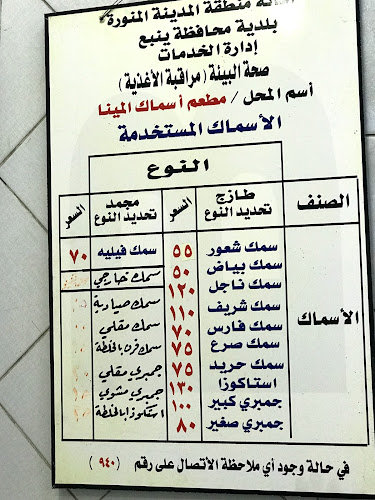 أمانة منطقة المدينة المنورة
بلدية محافظة ينبع
إدارة الخدمات
صحة البيئة (مراقبة الأغذية)
أسم المحل / مطعم أسماك المينا
الأسماك المستخدمة
النوع
الصنف طازج تحديد النوع السعر مجمد تحديد النوع السعر
الأسماك
سمك شعور ٥٥ سمك فيليه ٧٠
سمك بياض ٥٠ سمك خارجي
سمك ناجل ١٢٠ سمك صيادية
سمك شريف ١١٠ سمك مقلي
سمك فارس ٧٠
سمك صرع ٧٥ سمك فرد بالخلطة
سمك حريد ٧٥ جمبري مقلي
استاكوزا ١٣٠ جمبري مشوي
جمبري كبير ١٠٠ استكوزا بالخلطة
جمبري صغير ٨٠
في حالة وجود أي ملاحظة الأتصال على رقم (٩٤٠)